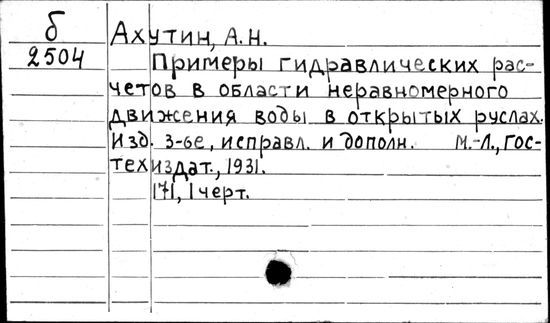 б
2504
Ахутин, А.Н.
Примеры гидравлических рас-
четов в области неравномерного
движения воды в открытых руслах.
Изд. 3-ье, исправл. и дополн. М.-Л., Гос-
техиздат., 1931.
171, 1 черт.